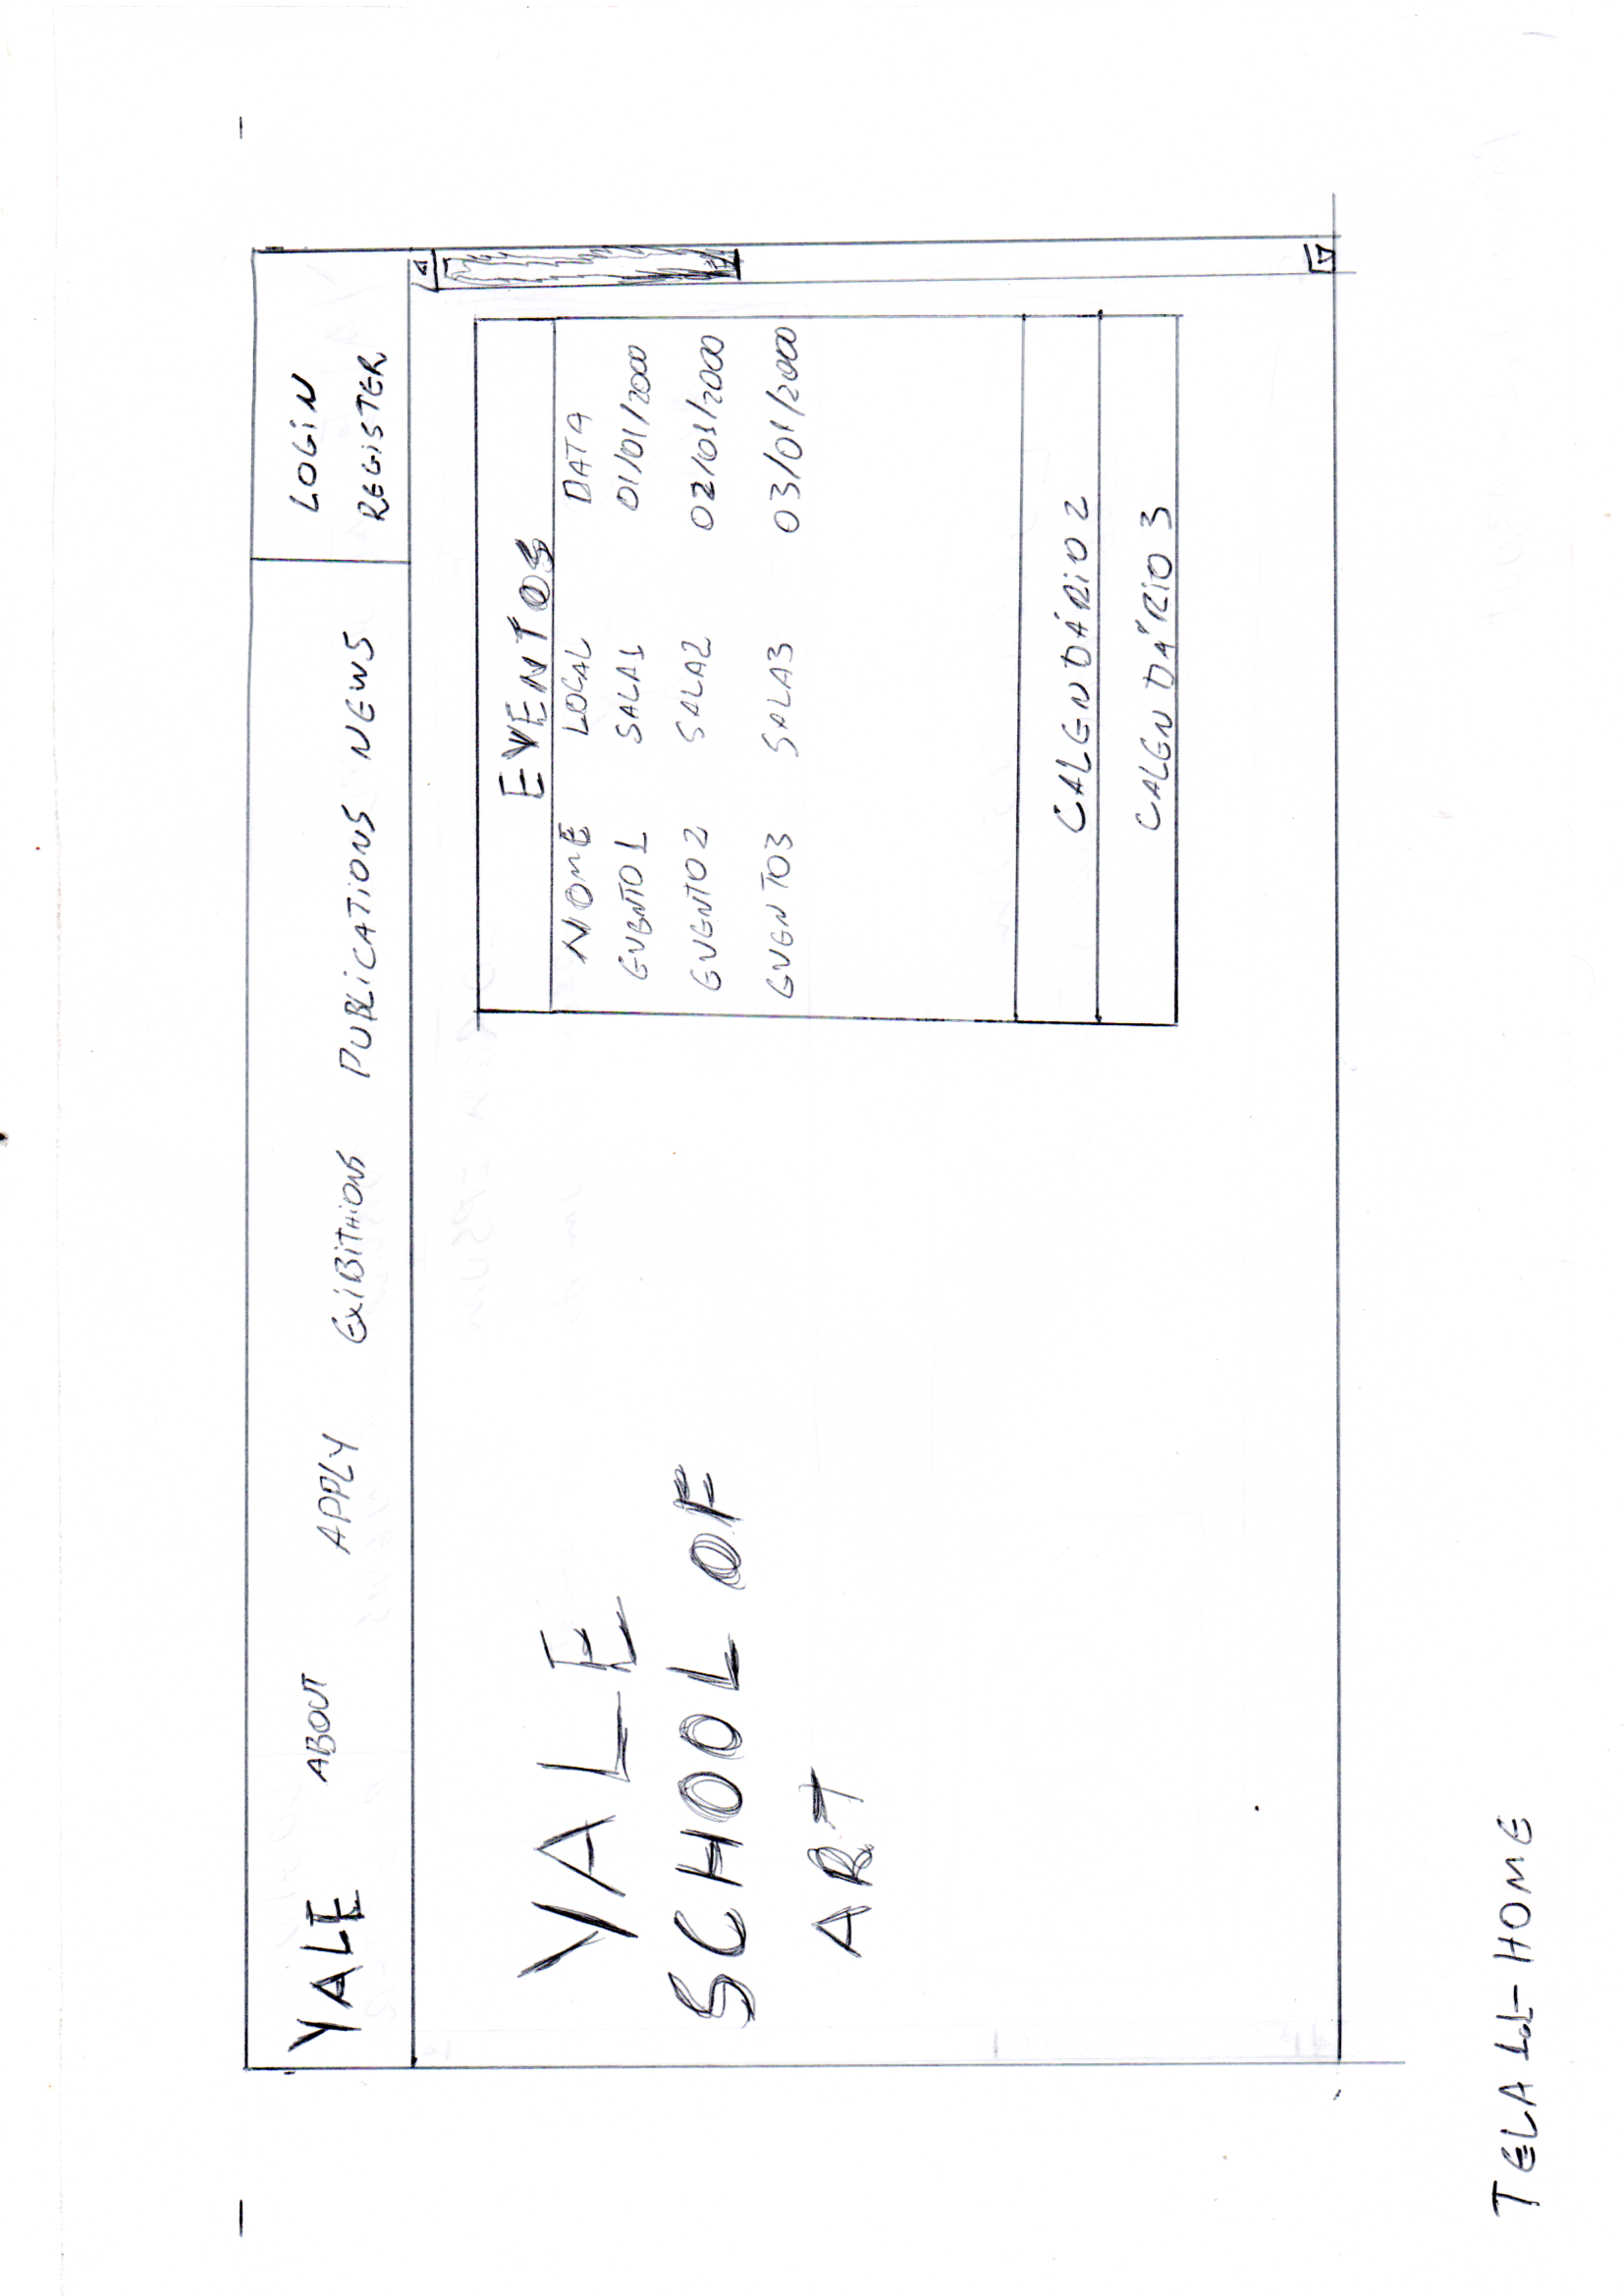 YALE ABOUT APPLY EXIBITHIONS PUBLICATIONS NEWS
LOGIN
REGISTER
YALE
SCHOOL OF
ART
EVENTOS
NOME LOCAL DATA
EVENTO1 SALA1 01/01/2000
EVENTO2 SALA2 02/01/2000
EVENTO3 SALA3 03/01/2000
CALENDÁRIO 2
CALENDÁRIO 3
TELA 1 - HOME